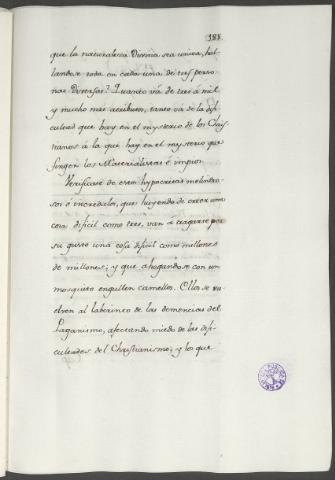 188.
que la naturaleza Divina sea unica, hal-
landose toda en cada una de tres perso-
nas diversas? Quanto vá de tres á mil
y mucho mas acribuen, tanto vá de la difi-
cultad que hay en el mysterio de los Chris-
tianos á la que hay en el mysterio que
fingen los Materialistas ó impios.
Verificase de estos hypocritas melindro-
sos ó incredulos, que huyendo de creer una
cosa dificil como tres, van á tragarse por
su gusto una cosa dificil como millones
de millones; y que ahogandose con un
mosquito engullen camellos. Ellos se vu-
elven al laberinto de las demencias del
Paganismo, afectando miedo de las difi-
cultades del Christianismo; y los que